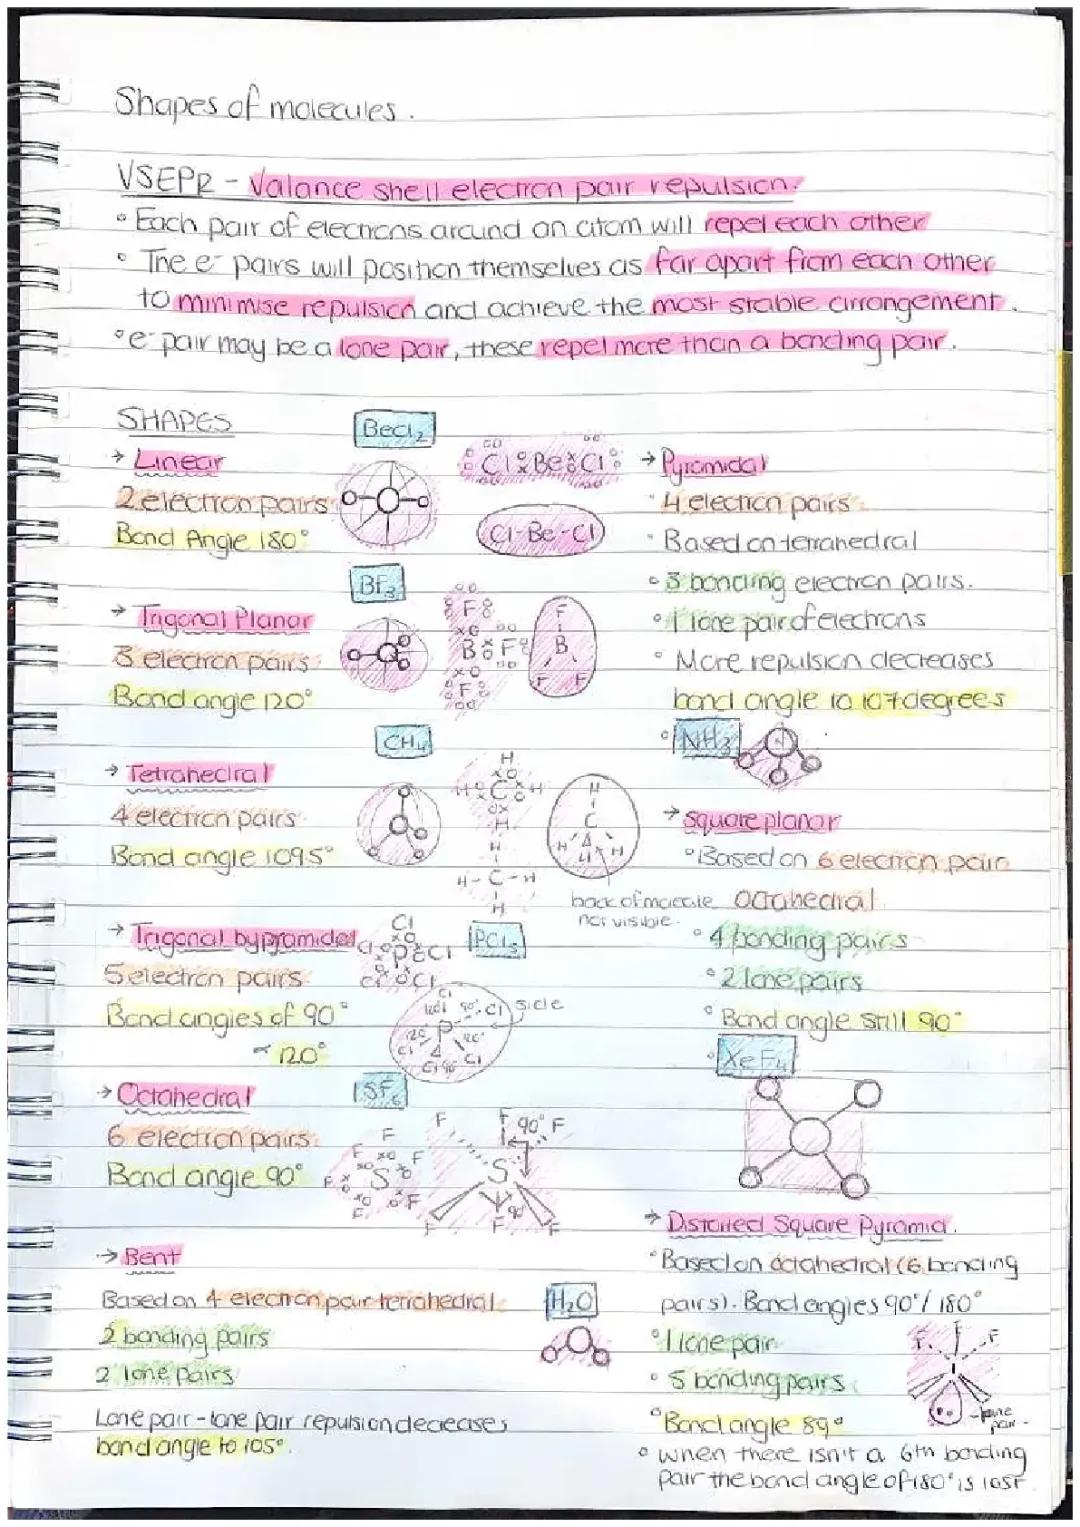 Shapes of molecules.
VSEPR - Valance shell electron pair repulsion.
• Each pair of electrons around an atom will repel each other
• The e⁻ pairs will position themselves as far apart from each other
to minimise repulsion and achieve the most stable arrangement.
• e⁻ pair may be a lone pair, these repel more than a bonding pair.
SHAPES
→ Linear
2 electron pairs
Bond Angle 180°
BeCl₂
Cl Be Cl
Cl-Be-Cl
→ Trigonal Planar
3 electron pairs
Bond angle 120°
BF₃
F
B F
F
F
B
F F
→ Tetrahedral
4 electron pairs
Bond angle 109.5°
CH₄
H
H C H
H
H
H-C-H
H
H
C
H H H
back of molecule
not visible.
→ Trigonal bypramidal
5 electron pairs
Bond angles of 90°
120°
PCl₅
Cl
Cl P Cl
Cl Cl
Cl
120 90° Cl side
120 P 120°
Cl
Cl 90° Cl
→ Octahedral
6 electron pairs
Bond angle 90°
SF₆
F
F F
S
F F
F
F F 90° F
S
F F 90 F
→ Bent
Based on 4 electron pair tetrahedral
2 bonding pairs
2 lone pairs
H₂O
Lone pair - lone pair repulsion decreases
bond angle to 105°.
→ Pyramidal
• 4 electron pairs
• Based on tetrahedral
• 3 bonding electron pairs.
• 1 lone pair of electrons
• More repulsion decreases
bond angle to 107 degrees
• NH₃
→ Square planar
• Based on 6 electron pair
octahedral
• 4 bonding pairs
• 2 lone pairs
• Bond angle still 90°
• XeF₄
→ Distorted Square Pyramid.
• Based on octahedral (6 bonding
pairs). Bond angles 90°/180°
• 1 lone pair
• 5 bonding pairs
• Bond angle 89°
F F F
I
lone
pair.
• when there isn't a 6th bonding
pair the bond angle of 180° is lost